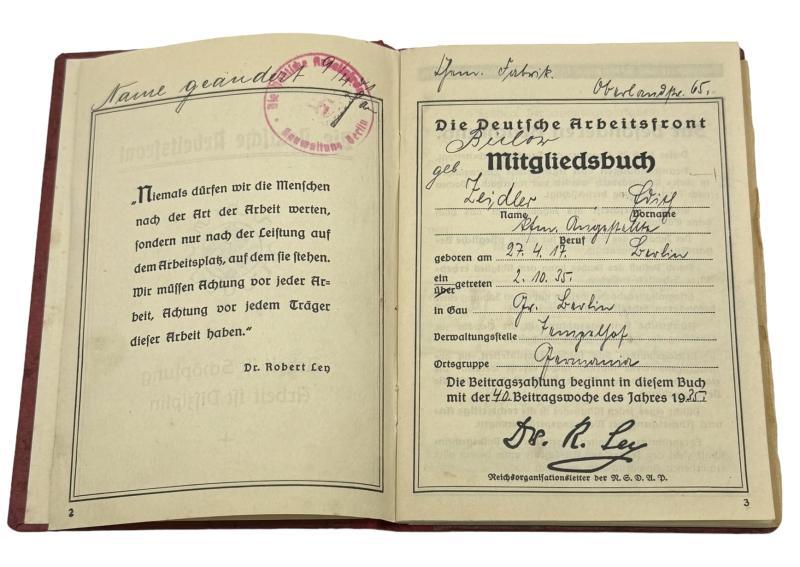 Name geändert 9/4
Die Deutsche Arbeitsfront
Gauwaltung Berlin
„Niemals dürfen wir die Menschen
nach der Art der Arbeit werten,
sondern nur nach der Leistung auf
dem Arbeitsplatz, auf dem sie stehen.
Wir müssen Achtung vor jeder Ar-
beit, Achtung vor jedem Träger
dieser Arbeit haben.“
Dr. Robert Ley
2
Chem. Fabrik.
Oberlandstr. 65.
Die Deutsche Arbeitsfront
Bülow
Mitgliedsbuch
geb.
Zeidler Edith
Name Vorname
Kfm. Angestellte
Beruf
geboren am 27. 4. 17. Berlin
ein
über getreten 2. 10. 35.
in Gau Gr. Berlin
Verwaltungsstelle Tempelhof
Ortsgruppe Germania
Die Beitragszahlung beginnt in diesem Buch
mit der 40. Beitragswoche des Jahres 1935.
Dr. R. Ley
Reichsorganisationsleiter der N.S.D.A.P.
3